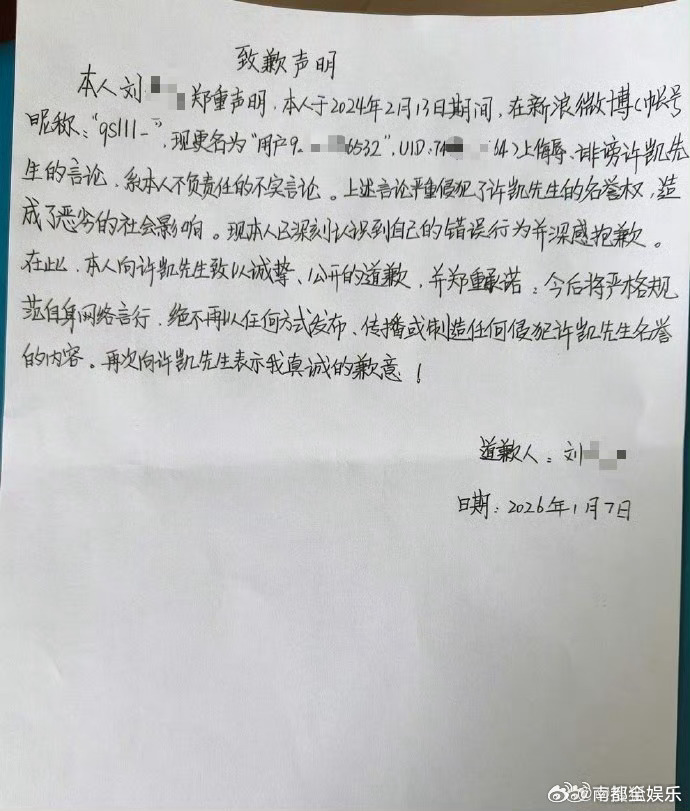 致歉声明
本人刘 郑重声明，本人于2024年2月13日期间，在新浪微博（帐号
昵称："qs111-"，现更名为"用户9 6532"，UID:74 64）上侮辱、诽谤许凯先
生的言论，系本人不负责任的不实言论。上述言论严重侵犯了许凯先生的名誉权，造
成了恶劣的社会影响。现本人已深刻认识到自己的错误行为并深感抱歉。
在此，本人向许凯先生致以诚挚、公开的道歉，并郑重承诺：今后将严格规
范自身网络言行，绝不再以任何方式发布、传播或制造任何侵犯许凯先生名誉
的内容。再次向许凯先生表示我真诚的歉意！
道歉人：刘
日期：2026年1月7日
南都全娱乐